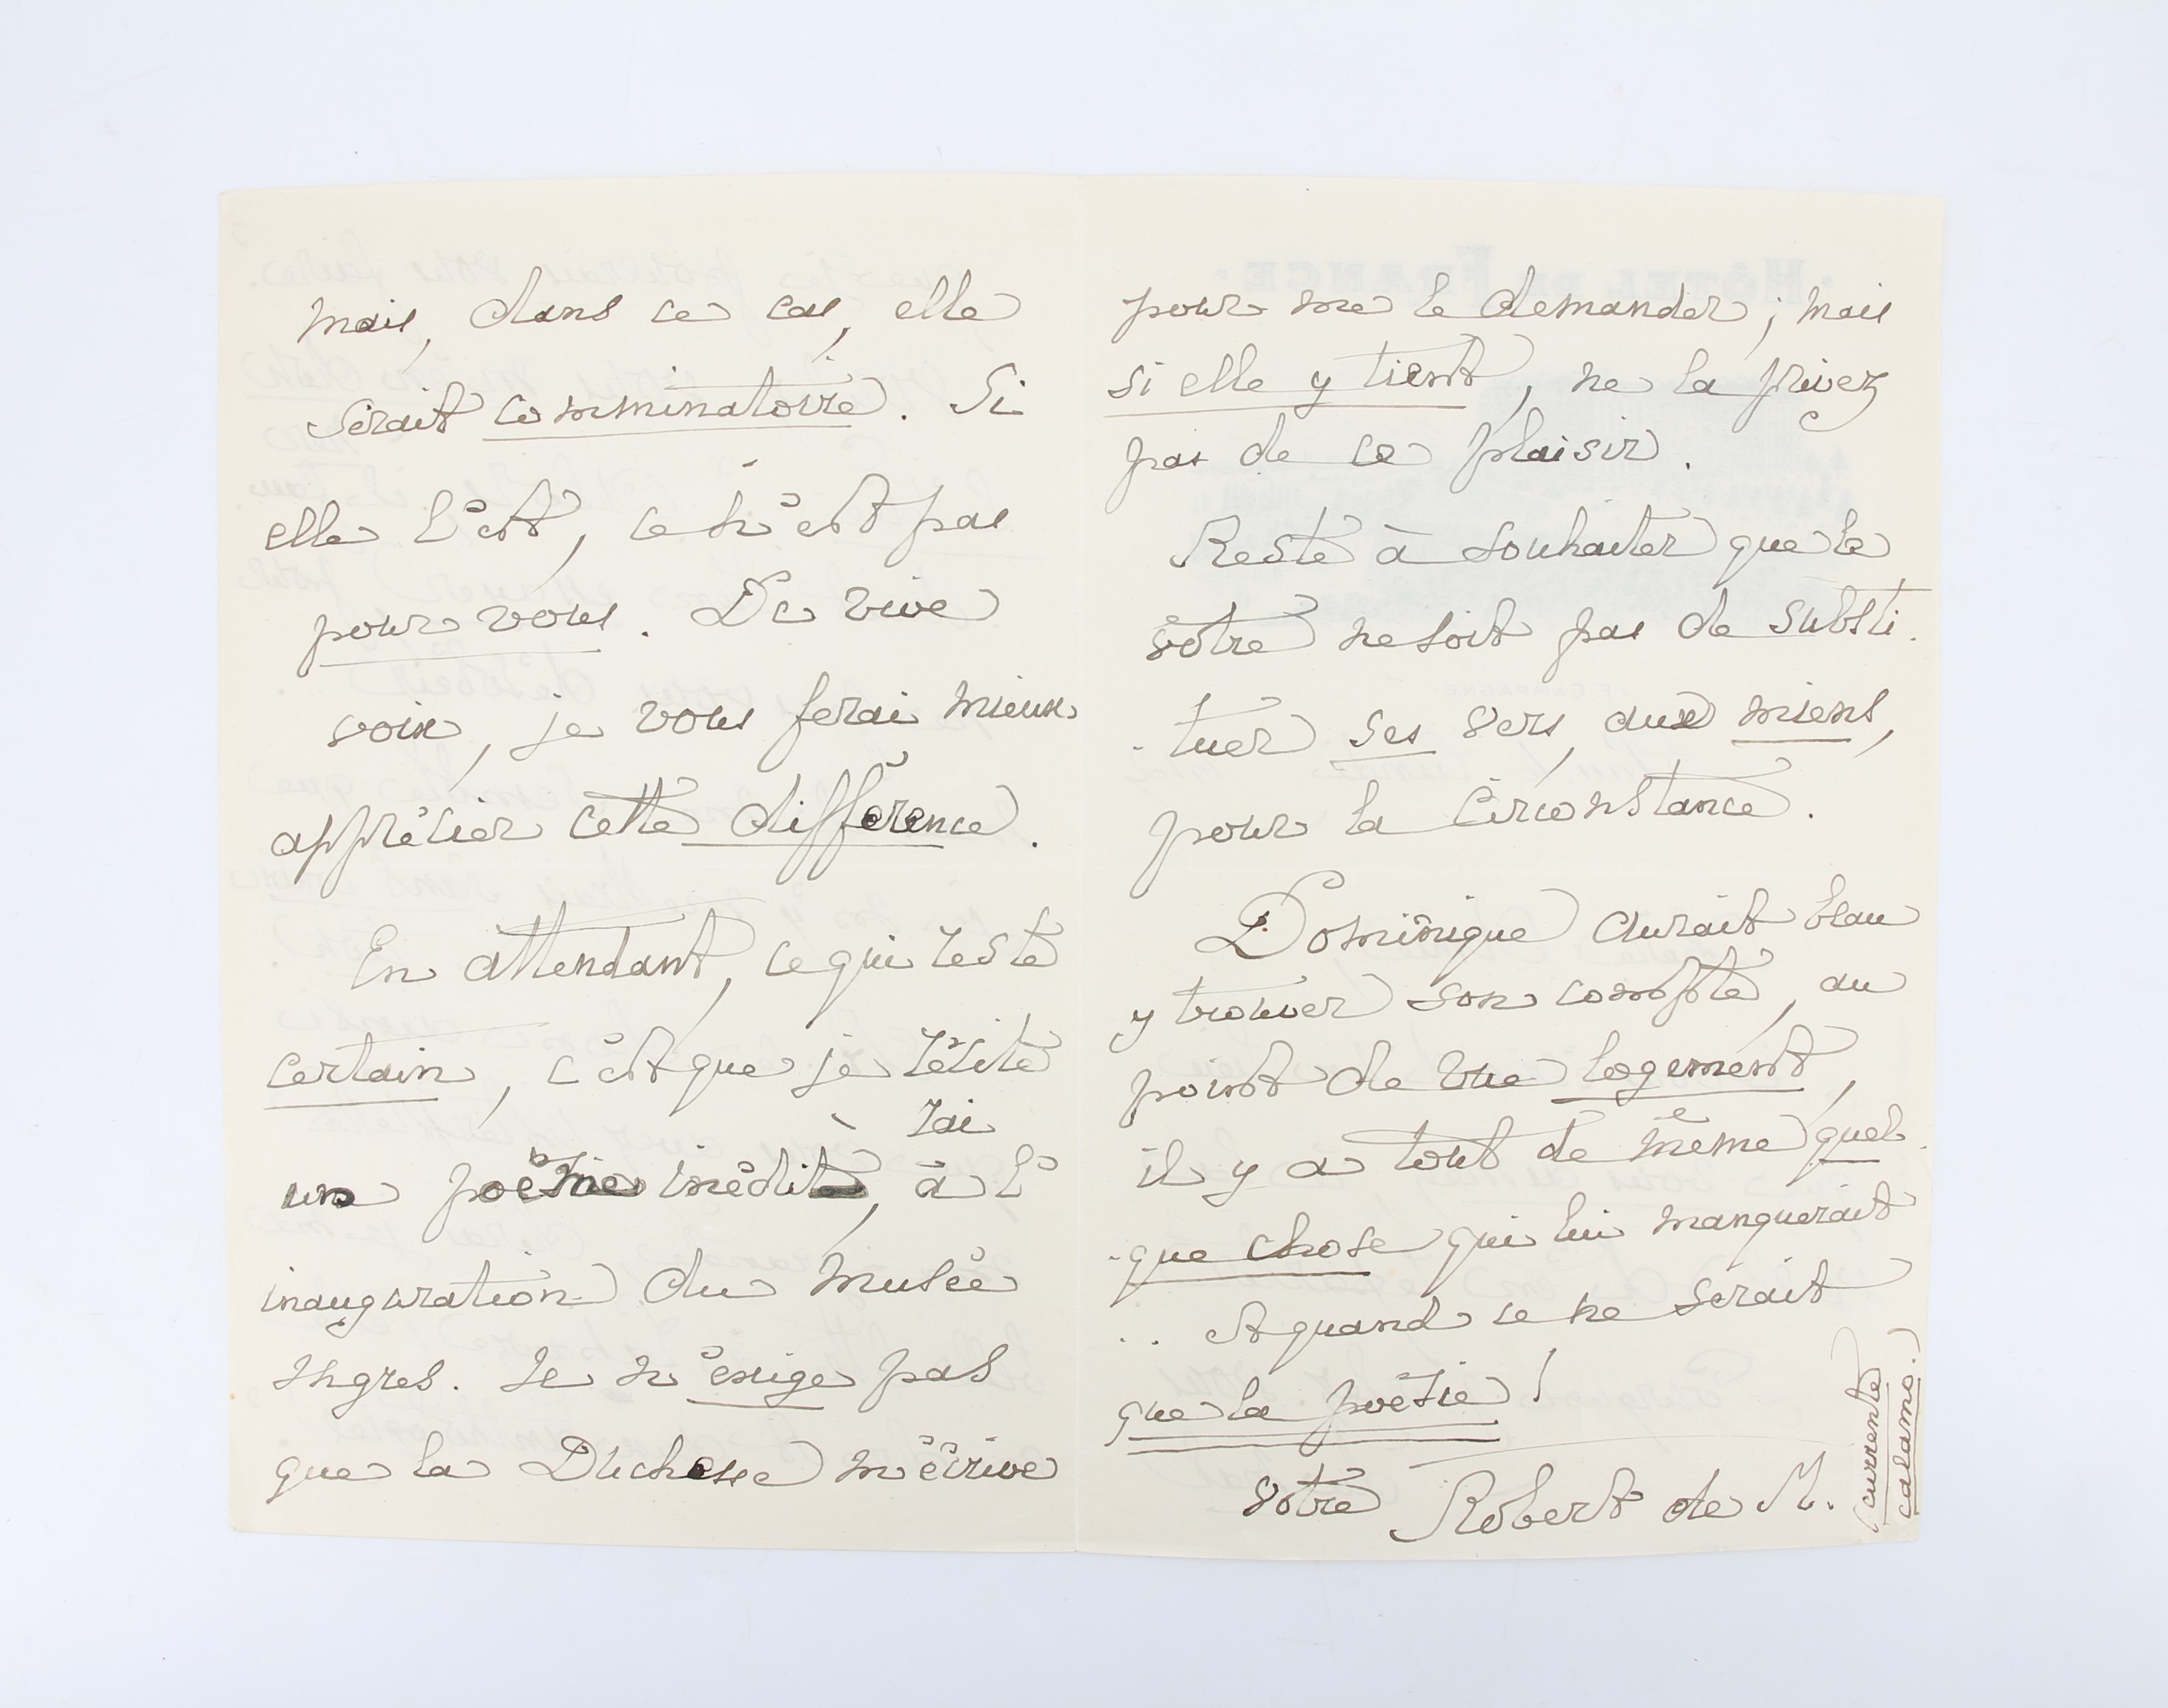 mais, dans ce cas, elle
serait comminatoire. Si
elle l'est, ce n'est pas
pour vous. De vive
voix, je vous ferai mieux
apprécier cette différence.
En attendant, ce qui reste
certain, c'est que je récite
rai
un poème inédit, à l'
inauguration du musée
Ingres. Je n'exige pas
que la Duchesse m'écrive
pour me le demander; mais
si elle y tient, ne la privez
pas de ce plaisir.
Reste à souhaiter que le
vôtre ne soit pas de substi-
-tuer ses vers, aux miens,
pour la circonstance.
Dominique aurait beau
y trouver son compte, au
point de vue logement,
il y a tout de même quel-
-que chose qui lui manquerait
.. Et quand ce ne serait
que la poésie!
votre Robert de M.
(currente
calamo.)
HÔTEL DE FRANCE